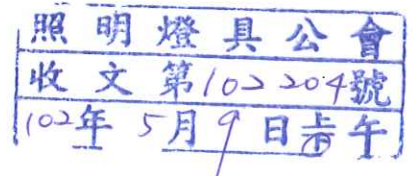 照明燈具公會
收文第102204號
102年5月9日上下午